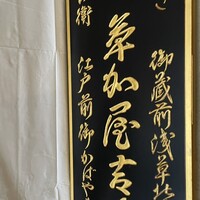 御蔵前浅草
草加屋吉
衛 江戸前御かはや